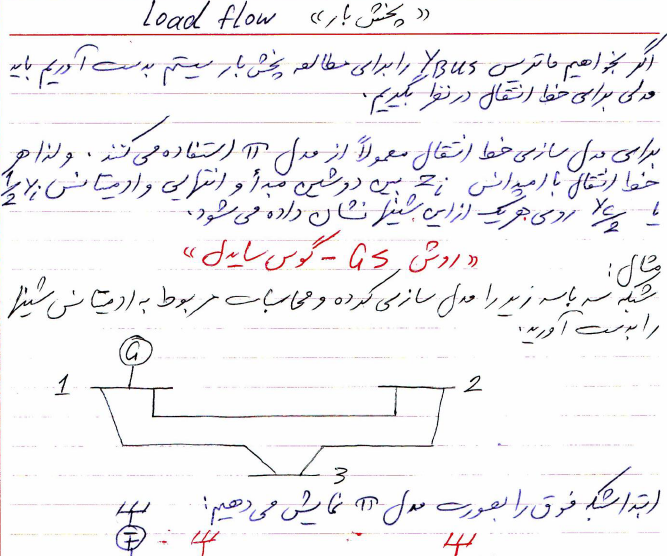 «پخش بار» Load flow
اگر بخواهیم ماتریس YBUS را برای مطالعه پخش بار سیستم بدست آوریم باید
مدلی برای خط انتقال در نظر بگیریم.
برای مدل سازی خط انتقال معمولاً از مدل π استفاده می کنند. و لذا هر
خط انتقال با امپدانس Zi بین دو شین مبدأ و انتهایی و ادمیتانس 1/2 Yi
یا Yc/2 روی هریک از این شینها نشان داده می شود.
«روش GS - گوس سایدل»
مثال:
شبکه سه باسه زیر را مدل سازی کرده و محاسبات مربوط به ادمیتانس شینها
را بدست آورید.
G
1 2
3
ابتدا شبکه فوق را بصورت مدل π نمایش می دهیم: